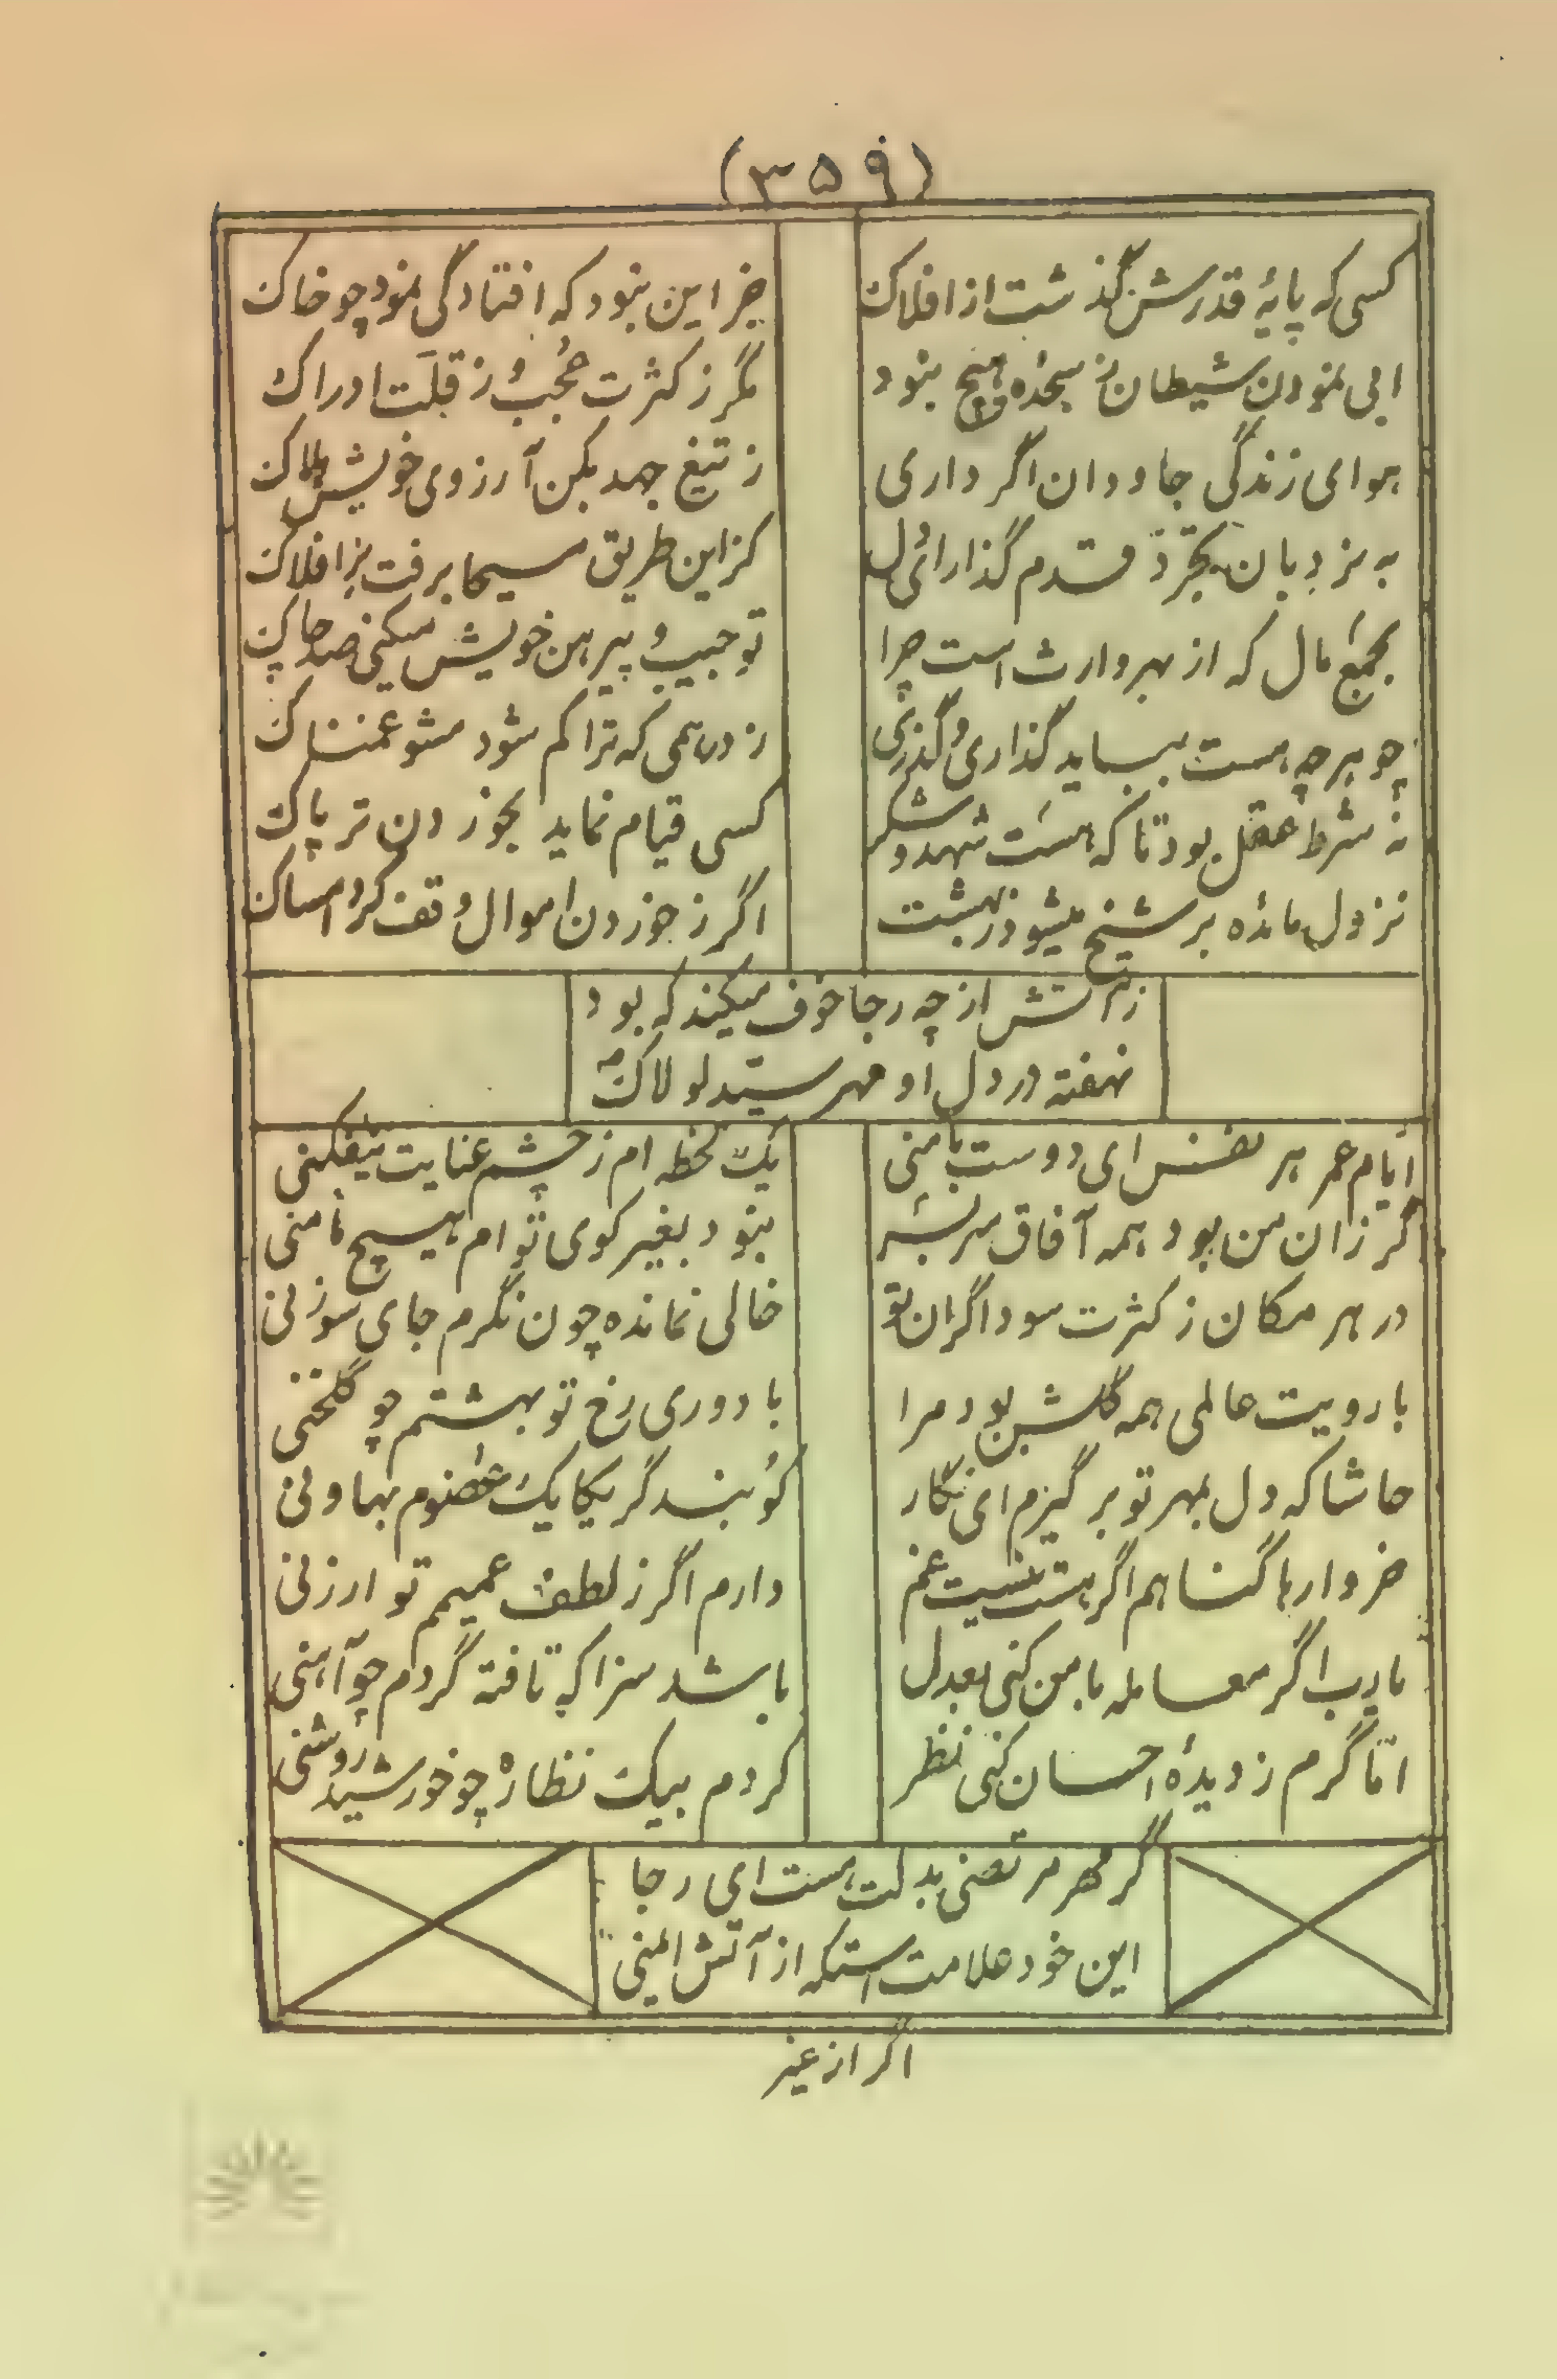 (۳۵۹)
کسی که پایهٔ قدرش گذشت از افلاک
جز این نبود که افتادگی نمود چو خاک
ابی نمودن شیطان ز سجده هیچ نبود
مگر ز کثرت عُجب و ز قلّت ادراک
هوای زندگی جاودان اگر داری
ز تیغ جهد بکن آرزوی خویش هلاک
به نردبان تجرّد قدم گذار ای دل
کز این طریق مسیحا برفت بر افلاک
بجمع مال که از بهر وارث است چرا
تو جیب و پیرهن خویش میکنی صد چاک
چو هر چه هست بباید گذاری و گذری
ز درهمی که ترا کم شود مشو غمناک
نه شرط عقل بود تا که هست شهد و شکر
کسی قیام نماید بخوردن تریاک
نزول مائده بر شیخ میشود ز بهشت
اگر ز خوردن اموال وقف کرد امساک
ز آتش از چه رجا خوف میکند که بود
نهفته در دل او مهر سیّد لولاک
ایام عمر هر نفس ای دوست با منی
یک لحظه ام ز چشم عنایت نیفکنی
گر زان من بود همه آفاق سر بسر
نبود بغیر کوی تو ام هیچ مامنی
در هر مکان ز کثرت سوداگران تو
خالی نمانده چون نگرم جای سوزنی
با رویت عالمی همه گلشن بود مرا
با دوری رخ تو بهشتم چو گلخنی
حاشا که دل بمهر تو بر گیرم ای نگار
کوبند گر یکایک عضوم بهاونی
خروارها گناهم اگر هست نیست غم
دارم اگر ز لطف عمیم تو ارزنی
یا رب اگر معامله با من کنی بعدل
باشد سزا که تافته گردم چو آهنی
امّا گرم ز دیدهٔ احسان کنی نظر
گردم بیک نظاره چو خورشید روشنی
گر مهر مرتضی بدلت هست ای رجا
این خود علامت استکه از آتش ایمنی
اگر از غیر